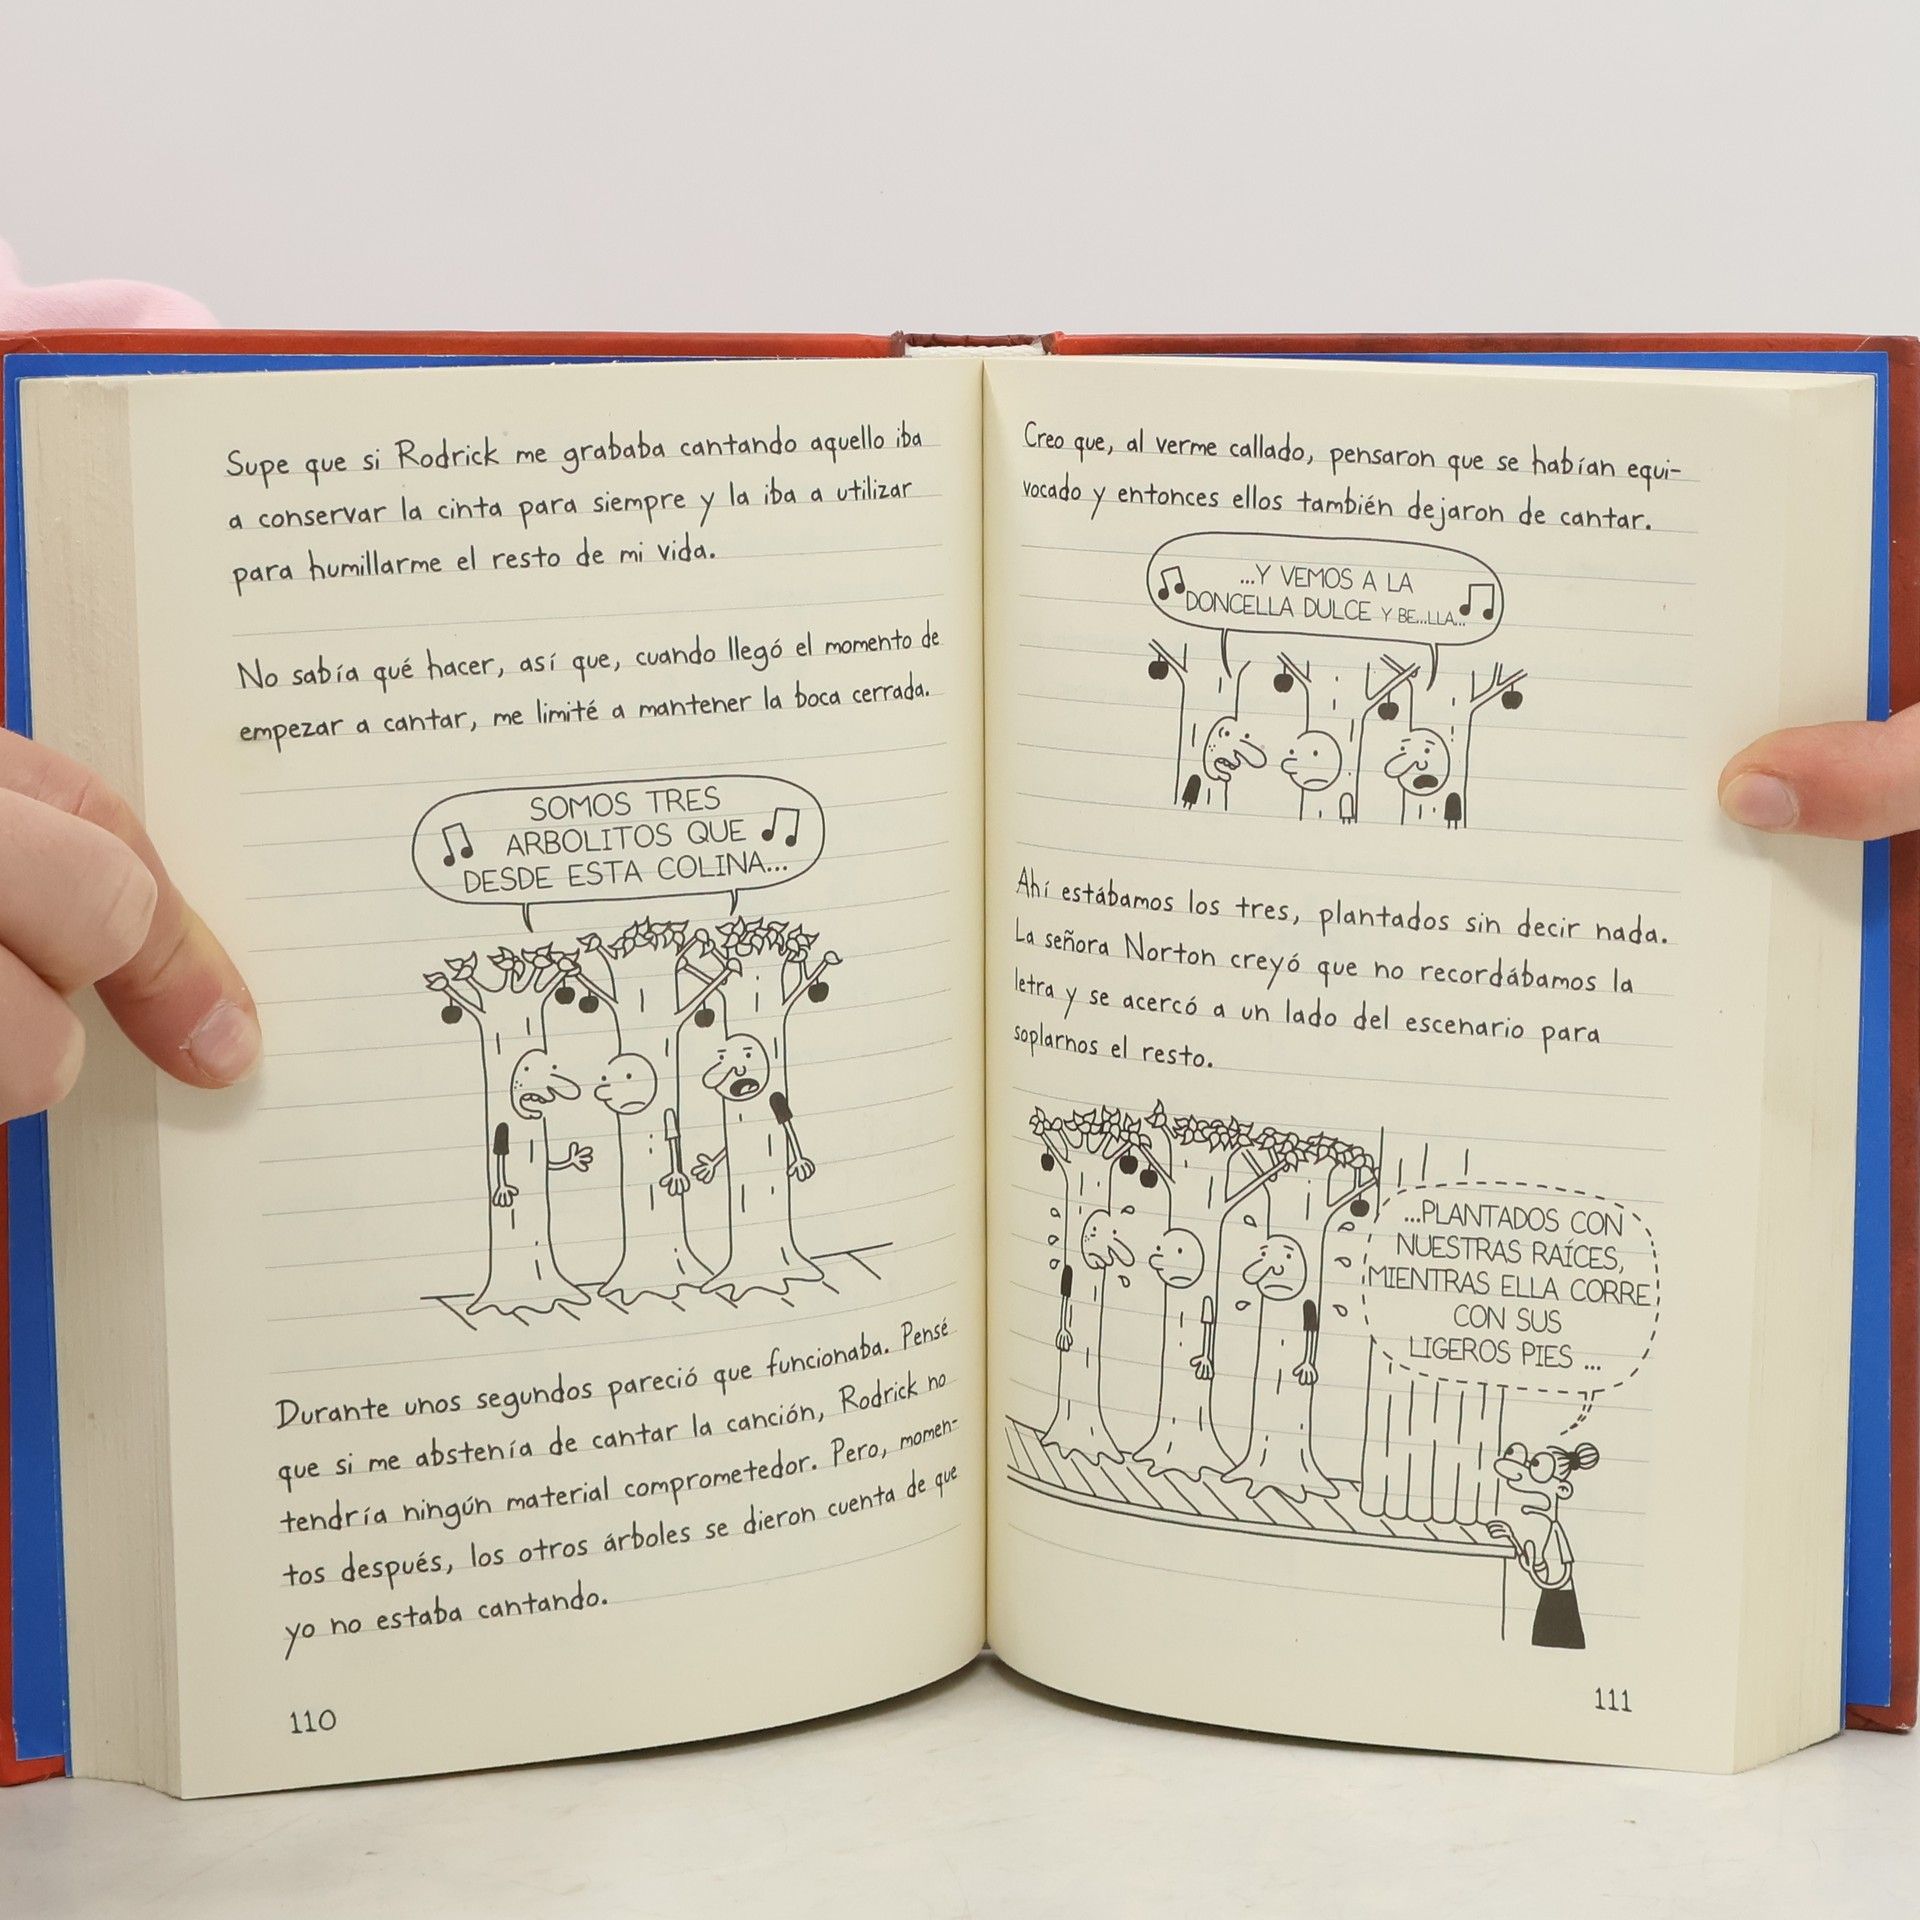 Supe que si Rodrick me grababa cantando aquello iba
a conservar la cinta para siempre y la iba a utilizar
para humillarme el resto de mi vida.
No sabía qué hacer, así que, cuando llegó el momento de
empezar a cantar, me limité a mantener la boca cerrada.
SOMOS TRES
ARBOLITOS QUE
DESDE ESTA COLINA...
Durante unos segundos pareció que funcionaba. Pensé
que si me abstenía de cantar la canción, Rodrick no
tendría ningún material comprometedor. Pero, momen-
tos después, los otros árboles se dieron cuenta de que
yo no estaba cantando.
110
Creo que, al verme callado, pensaron que se habían equi-
vocado y entonces ellos también dejaron de cantar.
...Y VEMOS A LA
DONCELLA DULCE Y BE...LLA...
Ahí estábamos los tres, plantados sin decir nada.
La señora Norton creyó que no recordábamos la
letra y se acercó a un lado del escenario para
soplarnos el resto.
...PLANTADOS CON
NUESTRAS RAÍCES,
MIENTRAS ELLA CORRE
CON SUS
LIGEROS PIES ...
111